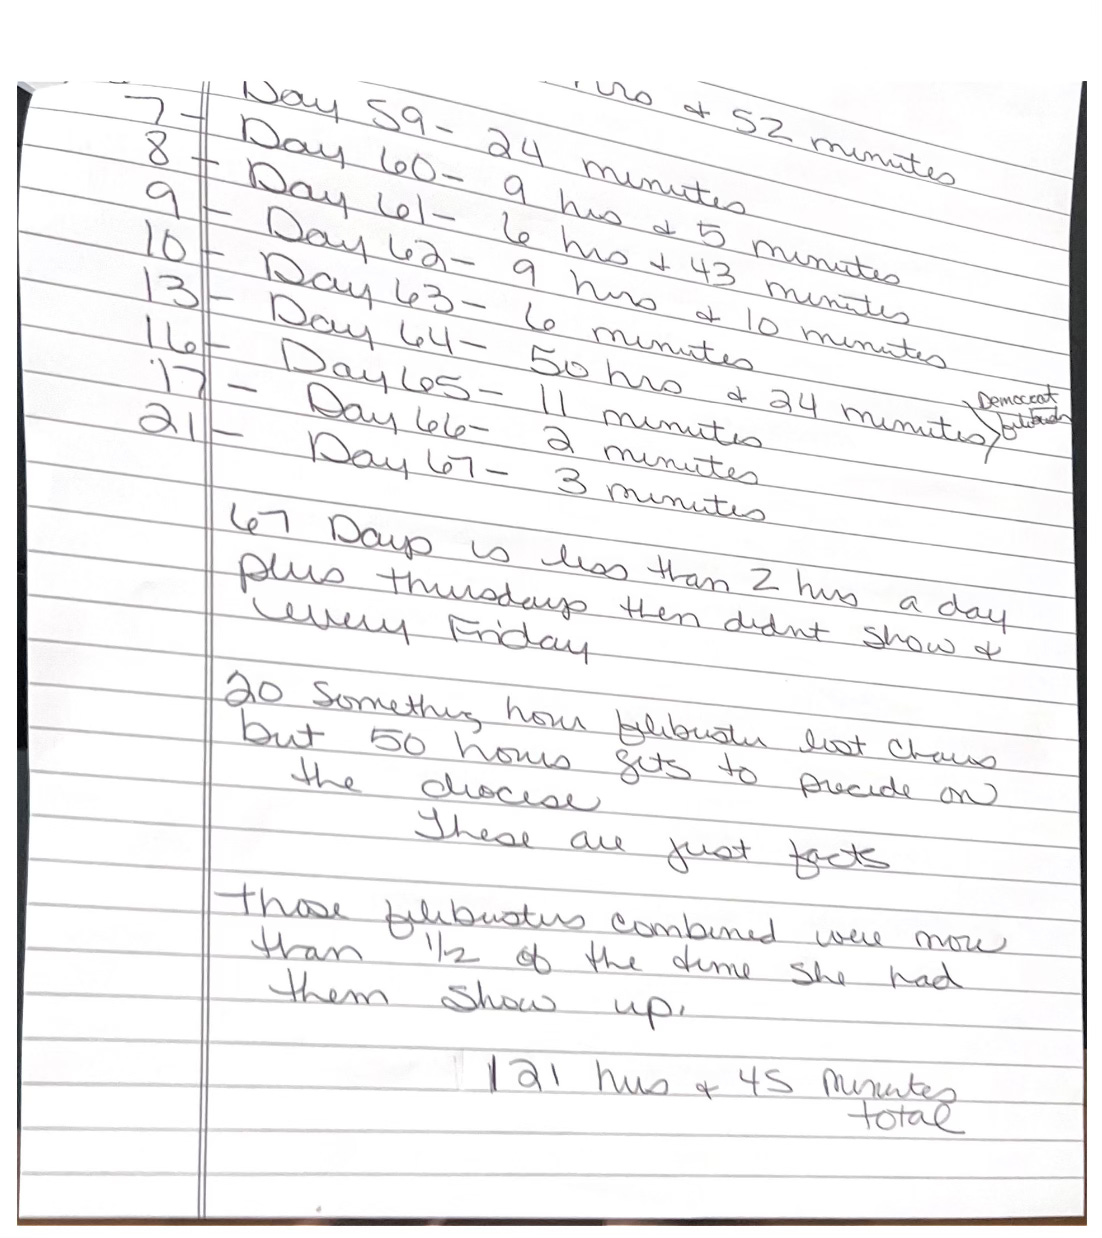 hrs & 52 minutes
7 - Day 59 - 24 minutes
8 - Day 60 - 9 hrs & 5 minutes
9 - Day 61 - 6 hrs & 43 minutes
10 - Day 62 - 9 hrs & 10 minutes
13 - Day 63 - 6 minutes
16 - Day 64 - 50 hrs & 24 minutes Democrat filibuster
17 - Day 65 - 11 minutes
21 - Day 66 - 2 minutes
Day 67 - 3 minutes
67 Days is less than 2 hrs a day
plus thursdays then didnt show &
every Friday
20 Something hour filibuster lost Chaos
but 50 hours gets to precide on
the diocese
These are just facts
Those filibusters combined were more
than 1/2 of the time she had
them show up.
121 hrs & 45 minutes
total